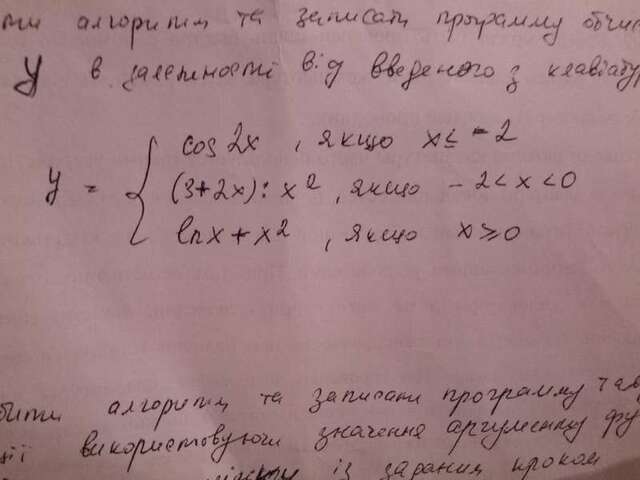 алгоритм та записати программу
y в залежності від введеного з
y = { cos 2x , якщо x ≤ -2
(3+2x) : x² , якщо -2 < x < 0
ln x + x² , якщо x ≥ 0
алгоритм та записати программу
використовуючи значення аргументу
із заданим кроком